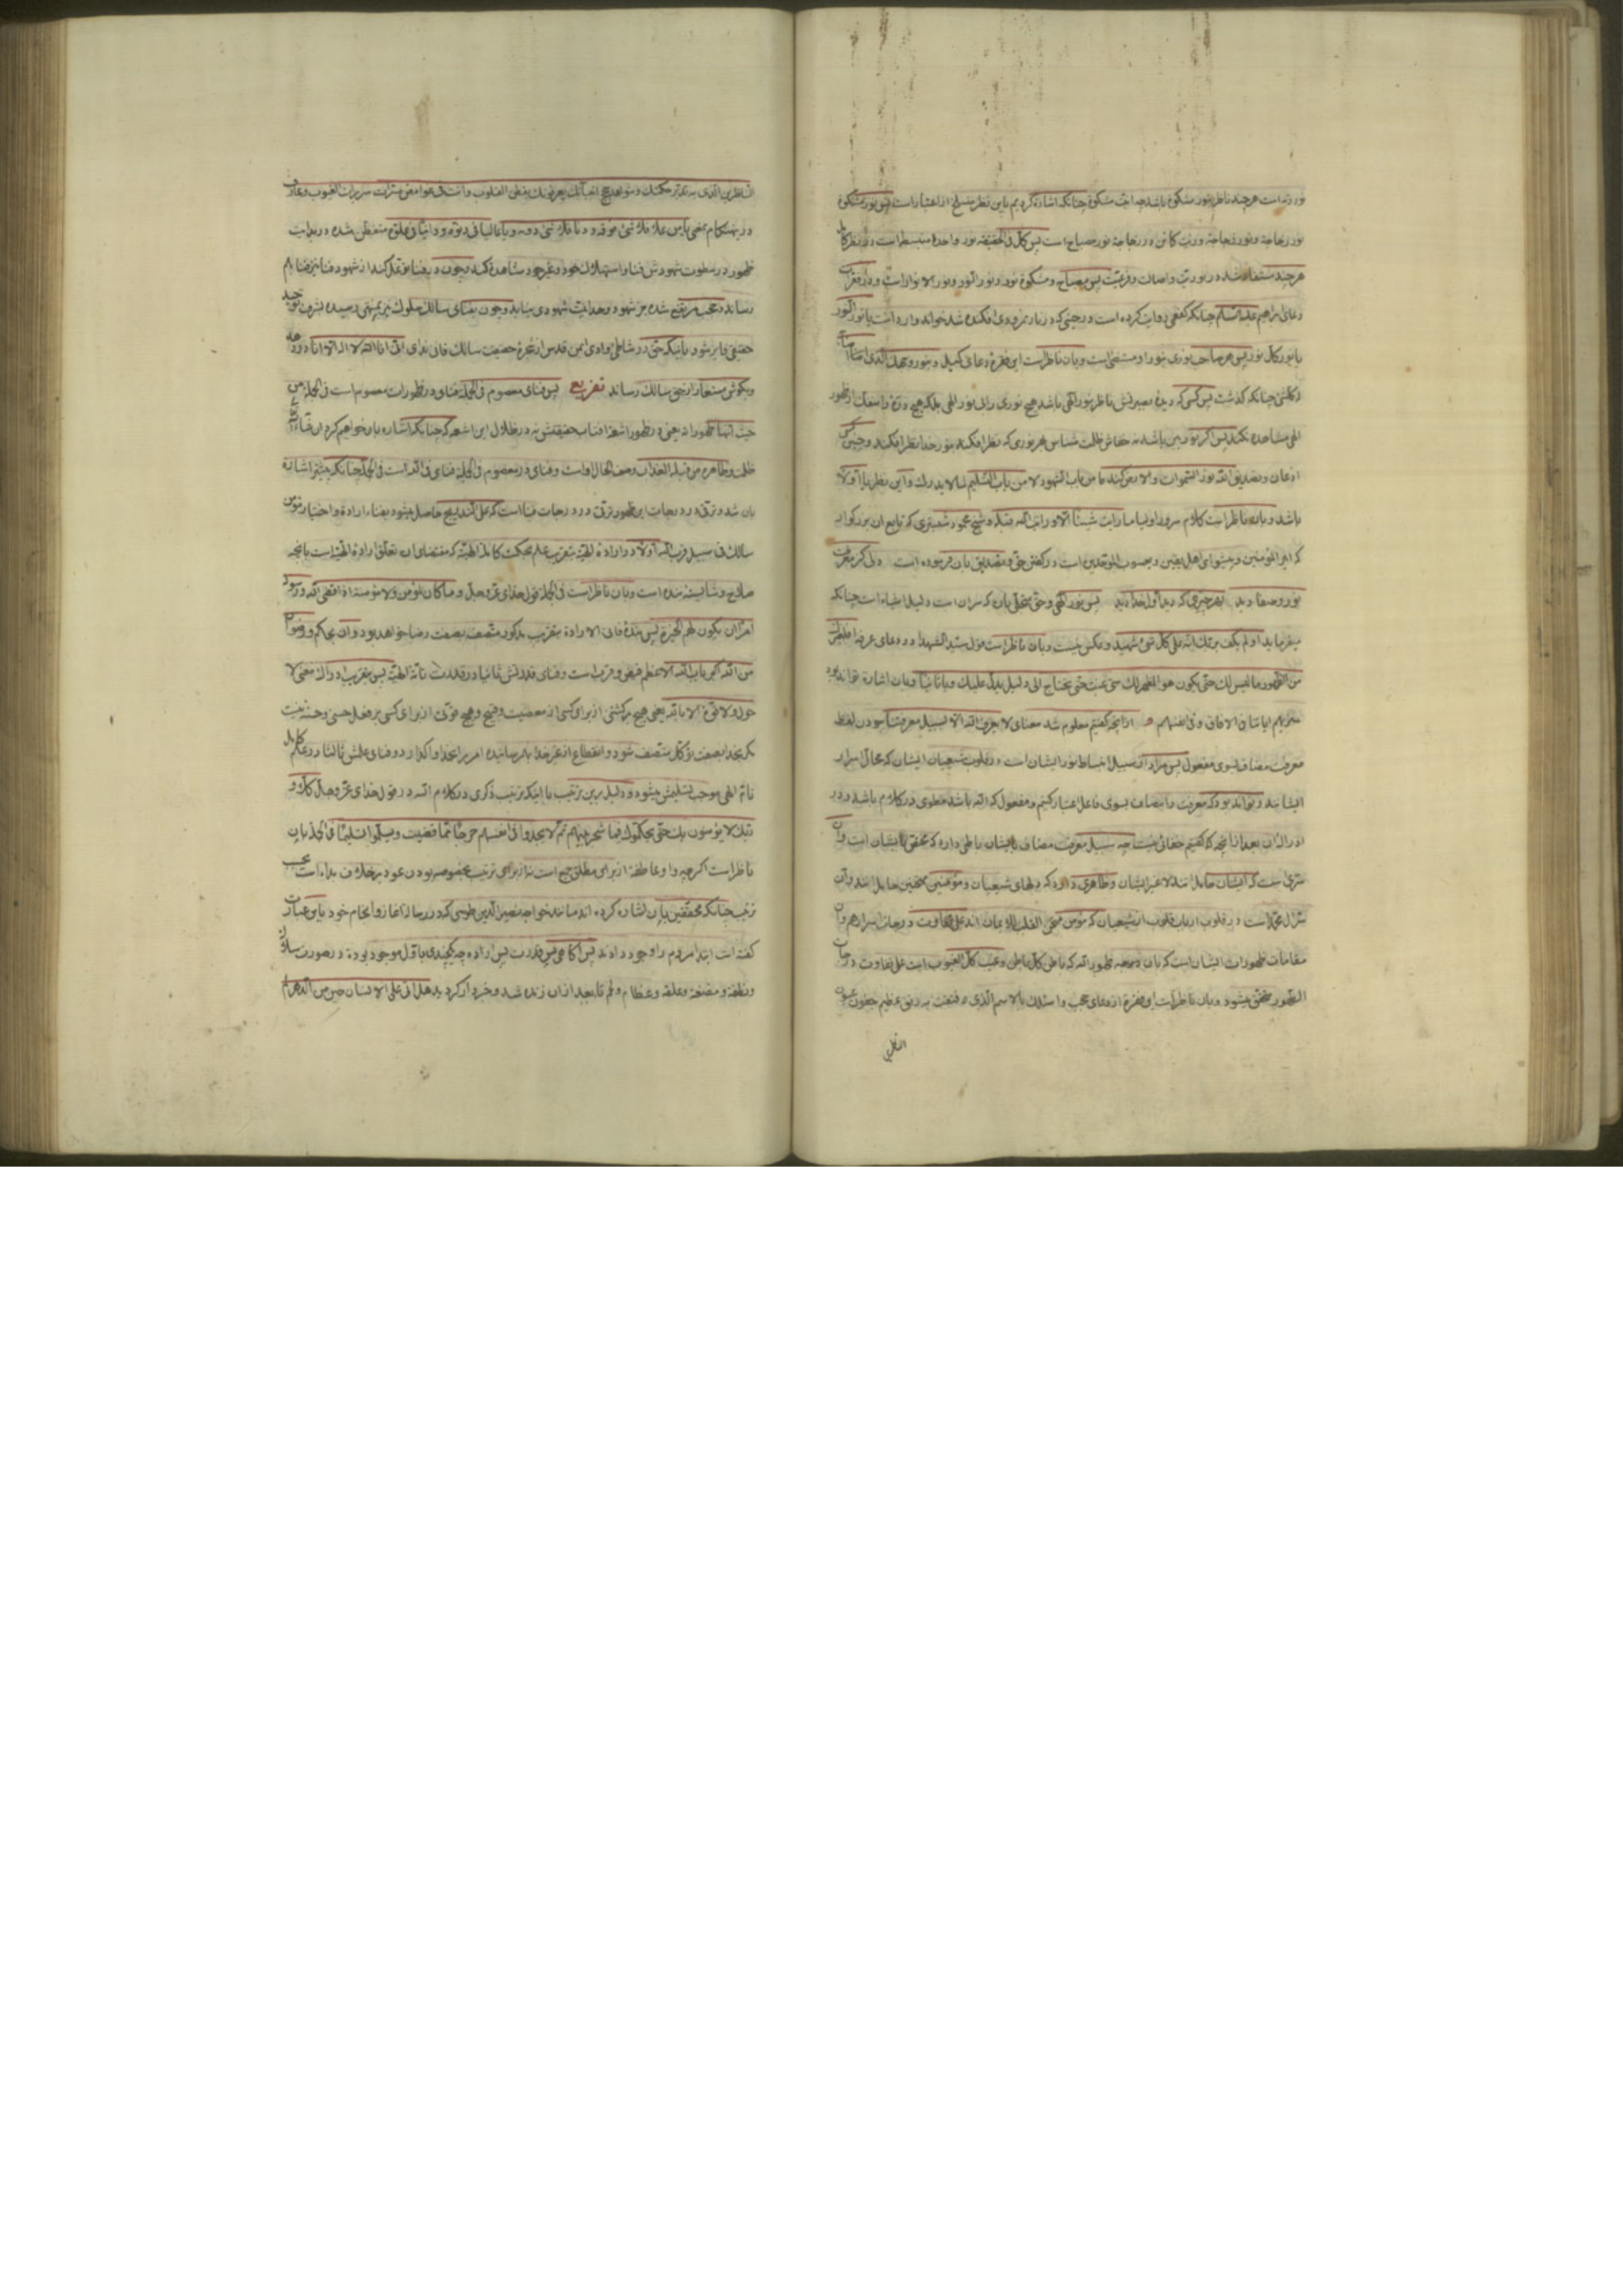 نور زیت است هر چند ناظر بنور مشکوة باشد چه انیت مشکوة چنانکه اشاره کردیم باین نظر منسلخ از اعتبار است پس نور مشکوة
نور زجاجة و نور زجاجة و زیت کائن در زجاجة نور مصباح است پس کل فی الحقیقه نور واحد منبسط است و در نظر کامل
هر چند مستفاد شد در نوریت و اصالت و فرعیت پس مصباح و مشکوة نور و نور النور و نور الانوار است و در فقرات
دعای ابراهیم علیه السلام چنانکه کفعمی روایت کرده است در حینی که در نار نمرودی افکنده شد خواند وارد است یا نور النور
یا نور کل نور پس هر صاحب نوری بنور او مستضئ است و بان ناظر است این فقره دعای کمیل و بنور وجهک الذی اضاء
له کلشئ چنانکه گذشت پس کسی که دیده بصیرتش ناظر بنور الهی باشد هیچ نوری را بی نور الهی بلکه هیچ ذره را منفک از ظهور
الهی مشاهده نکند پس اگر نور بین باشد نه خفاش ظلمت شناس بهر نوری که نظر افکند بنور خدا نظر افکند و چنین کس
اذعان و تصدیق الله نور السموات و الارض کند ما من باب الشهود لا من باب التسلیم لما لا یدرک و این نظر یا اولا
باشد و بان ناظر است کلام سرور اولیا ما رایت شیئا الا و رایت الله قبله و شیخ محمود شبستری که تابع ان بزرگوار
که امیر المؤمنین و پیشوای اهل یقین و یعسوب الموحدین است در گفتن حق و تصدیق بان فرموده است دلی کز معرفت
نور و صفا دید بهر چیزی که دید اول خدا دید پس نور الهی و حق متجلی بان که سران است دلیل اشیاء است چنانکه
میفرماید او لم یکف بربک انه علی کل شئ شهید و عکس نیست و بان ناظر است قول سید الشهدا در دعای عرفه الغیرک
من الظهور ما لیس لک حتی یکون هو المظهر لک متی غبت حتی تحتاج الی دلیل یدل علیک و یا ثانیا و بان اشاره تواند بود
سنریهم ایاتنا فی الافاق و فی انفسهم و از انچه گفتیم معلوم شد معنای لا یعرف الله الا بسبیل معرفتنا بودن لفظ
معرفت مضاف بسوی مفعول پس مراد از سبیل انبساط نور ایشان است در قلوب شیعیان ایشان که محال اسرار
ایشانند و تواند بود که معرفت را مضاف بسوی فاعل اعتبار کنیم و مفعول که الله باشد مطوی در کلام باشد و در
ادراک ان بعد از انچه که گفتیم خفائی نیست چه سبیل معرفت مضاف بایشان باطنی دارد که مختص بایشان است و ان
سری است که ایشان حاملند لا غیر ایشان و ظاهری دارد که دلهای شیعیان و مؤمنین ممتحنین حاملند و ان
تنزل محمد است در قلوب ارباب قلوب از شیعیان که مؤمن ممتحن القلب للایمان اند علی تفاوت درجات اسرارهم و ان
مقامات ظهورات ایشان است که بان وجهه ظهور الله که باطن کل باطن و غیب کل الغیوب است علی تفاوت درجات
الظهور متحقق میشود و بان ناظر است این فقره از دعای حجب و اسئلک بالاسم الذی فتقت به رتق عظیم جفون عیون
الناظرین
الناظرین الذی به تدبیر حکمتک و شواهد حجج انبیائک یعرفونک بفطن القلوب و انت فی غوامض مسرات سریرات الغیوب و عارف
در هنگام تمعن باین علائق ثنی فوقه و دنا فلا ثنی دونه و یا عالیا فی دنوه و دانیا فی علوه متفطن شده در بدایت
ظهور در سطوت شهودش فنا و استهلاک خود و غیر خود مشاهده کند و چون دیفنا توغل کند از شهود فنا نیز فنا بهم
رساند و حجب مرتفع شده جز شهود وحدانیت شهودی نیابد و چون بفنای سالک سلوک نیز بمنتهی رسیده بشرف توحید
حقیقی فایز شود بانیکه حتی در شاطئ وادی ایمن قدس از شجره حقیقت سالک فان ندای انی انا الله لا اله الا انا در دهد
و بگوش مستعار از حق سالک رساند تفریع پس فنای معصوم فی الجمله فنای در ظهورات معصوم است فی الجمله من
حیث انها ظهوراته یعنی در ظهور اشعه افتاب حقیقتش نه در ظلال این اشعه که چنانکه اشاره بان خواهیم کرد ان شاء الله
ظلمت و ظاهره من قبله العذاب وصف الحال اوست و فنای در معصوم فی الجمله فنای فی الله است فی الجمله چنانکه پیشتر اشاره
بان شد و ترقی در درجات این ظهور ترقی در درجات فنا است که علی التدریج حاصل میشود بفناء اراده و اختیار مؤمن
سالک فی سبیل قرب الله اولا در اراده الهیه بتقریب علم بحکمت کامله الهیه که مقتضای ان تعلق اراده الهیه است بانچه
صلاح و شایسته بنده است و بان ناظر است فی الجمله قول خدای عز و جل و ما کان لمؤمن و لا مؤمنة اذا قضی الله و رسوله
امرا ان یکون لهم الخیرة پس بنده فانی الاراده بتقریب مذکور متصف بصفت رضا خواهد بود و ان بحکم و رضوان
من الله اکبر باب الله الاعظم فیض و قرب است و فنای قدرتش ثانیا در قدرت تامه الهیه پس بتقریب ادراک معنی لا
حول و لا قوة الا بالله یعنی هیچ برگشتنی از برای کسی از معصیت و قبیح و هیچ قوتی از برای کسی بر فعل حسن و حسنه نیست
مگر بخدا بصفت توکل متصف شود و انقطاع از غیر خدا بهم رسانیده امر برا بخدا واگذارد و فنای علمش ثالثا در علم کامل
تام الهی موجب تسلیمش میشود و دلیل برین ترتیب با اینکه ترتیب ذکری در کلام الله در قول خدای عز و جل کلا و
ربک لا یؤمنون بک حتی یحکموک فیما شجر بینهم ثم لا یجدوا فی انفسهم حرجا مما قضیت و یسلموا تسلیما فی الجمله بان
ناظر است اگر چه واو عاطفه از برای مطلق جمع است نه از برای ترتیب بخصوصه بودن عود بر خلاف بداءات بحسب
ترتیب چنانکه محققین بان اشاره کرده اند مانند خواجه نصیر الدین طوسی که در رساله اغاز و انجام خود باین عبارت
گفته است ابتدا مردم را وجود دادند پس اگاهی پس قدرت پس اراده چه یکچندی باول موجود بوده در صورت سلاله
و نطفه و مضغه و علقه و عظام و لحم تا بعد از ان زنده شد و خبردار گردید هل اتی علی الانسان حین من الدهر لم